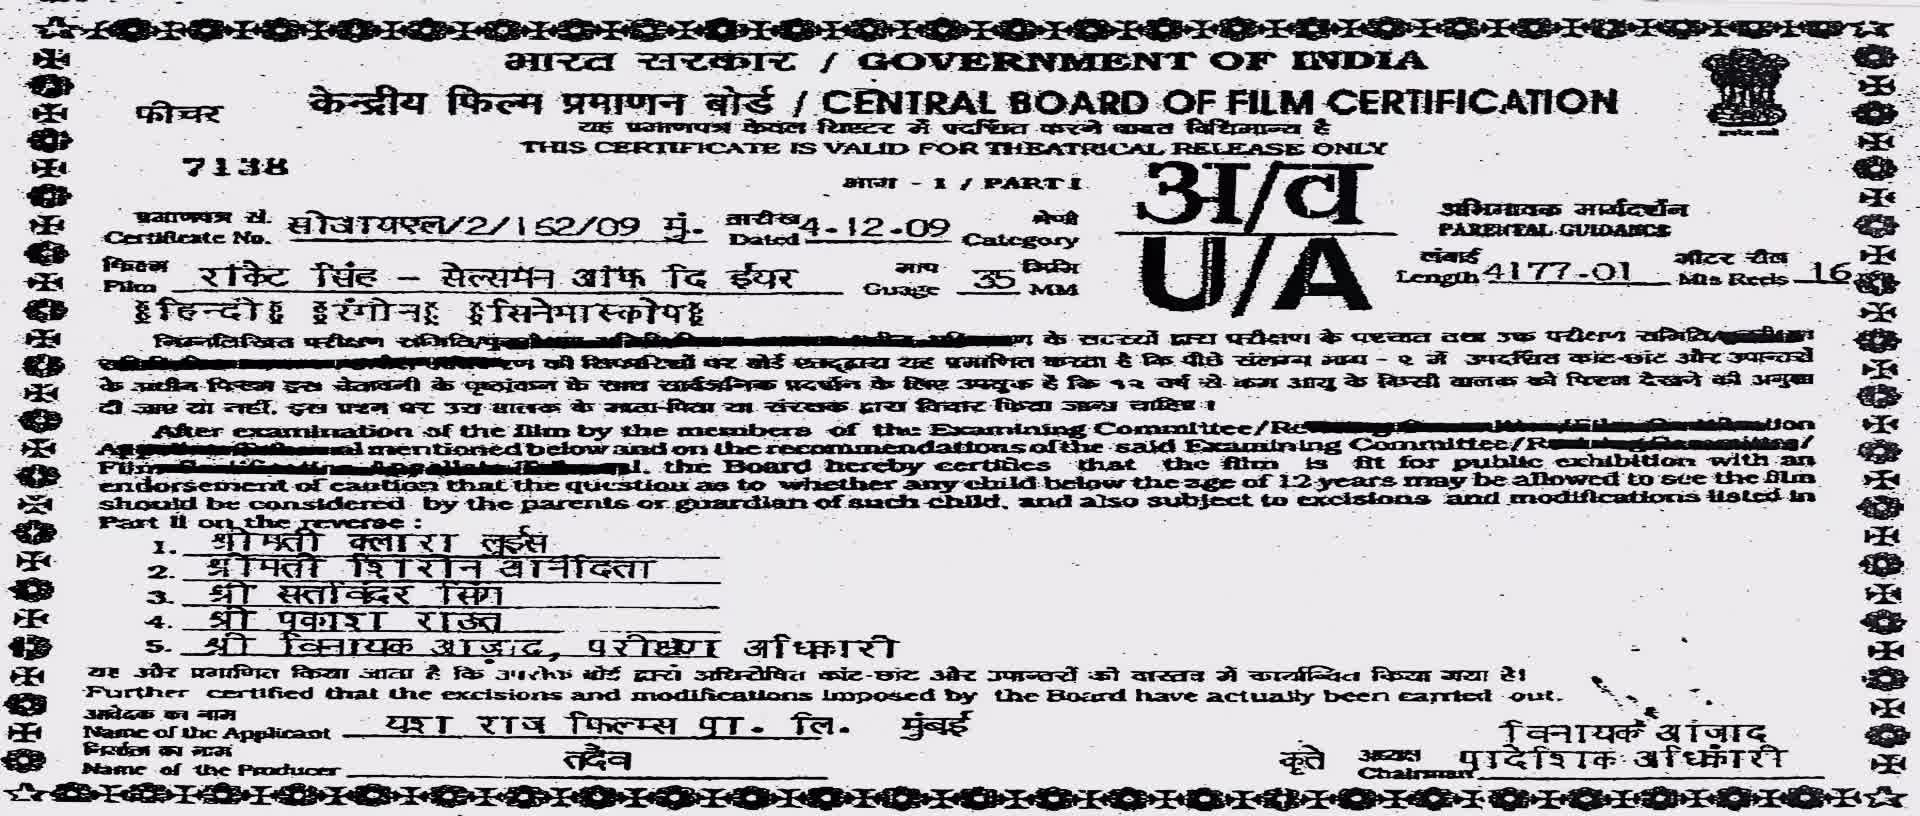 भारत सरकार / GOVERNMENT OF INDIA
फीचर
केन्द्रीय फिल्म प्रमाणन बोर्ड / CENTRAL BOARD OF FILM CERTIFICATION
यह प्रमाणपत्र केवल थिएटर में प्रदर्शित करने बाबत विधिमान्य है
THIS CERTIFICATE IS VALID FOR THEATRICAL RELEASE ONLY
7138
भाग - 1 / PART I
अ/व
U/A
प्रमाणपत्र सं.
Certificate No. /2/152/09 मुं. तारीख Dated 4.12.09 श्रेणी Category
अभिभावक मार्गदर्शन
PARENTAL GUIDANCE
फिल्म
Film राकेट सिंह - सेल्समेन आफ दि ईयर माप Guage 35 मिमि MM
लंबाई Length 4177-01 मीटर रील Mts Reels 16
हिन्दी रंगीन सिनेमास्कोप
निम्नलिखित परीक्षण समिति/ के सदस्यों द्वारा परीक्षण के पश्चात तथा उक्त परीक्षण समिति/
की सिफारिशों पर बोर्ड एतद्द्वारा यह प्रमाणित करता है कि पीछे संलग्न भाग - २ में उपदर्शित कांट-छांट और उपान्तरों
के अधीन फिल्म इस चेतावनी के पृष्ठांकन के साथ सार्वजनिक प्रदर्शन के लिए उपयुक्त है कि १२ वर्ष से कम आयु के किसी बालक को फिल्म देखने की अनुज्ञा
दी जाए या नहीं, इस प्रश्न पर उस बालक के माता-पिता या संरक्षक द्वारा विचार किया जाना चाहिए।
After examination of the film by the members of the Examining Committee/
mentioned below and on the recommendations of the said Examining Committee/
Film the Board hereby certifies that the film is fit for public exhibition with an
endorsement of caution that the question as to whether any child below the age of 12 years may be allowed to see the film
should be considered by the parents or guardian of such child, and also subject to excisions and modifications listed in
Part II on the reverse :
1. श्रीमती क्लारा लुईस
2. श्रीमती शिरीन
3. श्री सतविंदर सिंग
4. श्री प्रकाश राऊत
5. श्री विनायक आजाद, परीक्षण अधिकारी
यह और प्रमाणित किया जाता है कि बोर्ड द्वारा अधिरोपित कांट-छांट और उपान्तरों को वास्तव में कार्यान्वित किया गया है।
Further certified that the excisions and modifications imposed by the Board have actually been carried out.
आवेदक का नाम
Name of the Applicant यश राज फिल्म्स प्रा. लि. मुंबई
निर्माता का नाम
Name of the Producer तदैव
विनायक आजाद
कृते अध्यक्ष Chairman प्रादेशिक अधिकारी